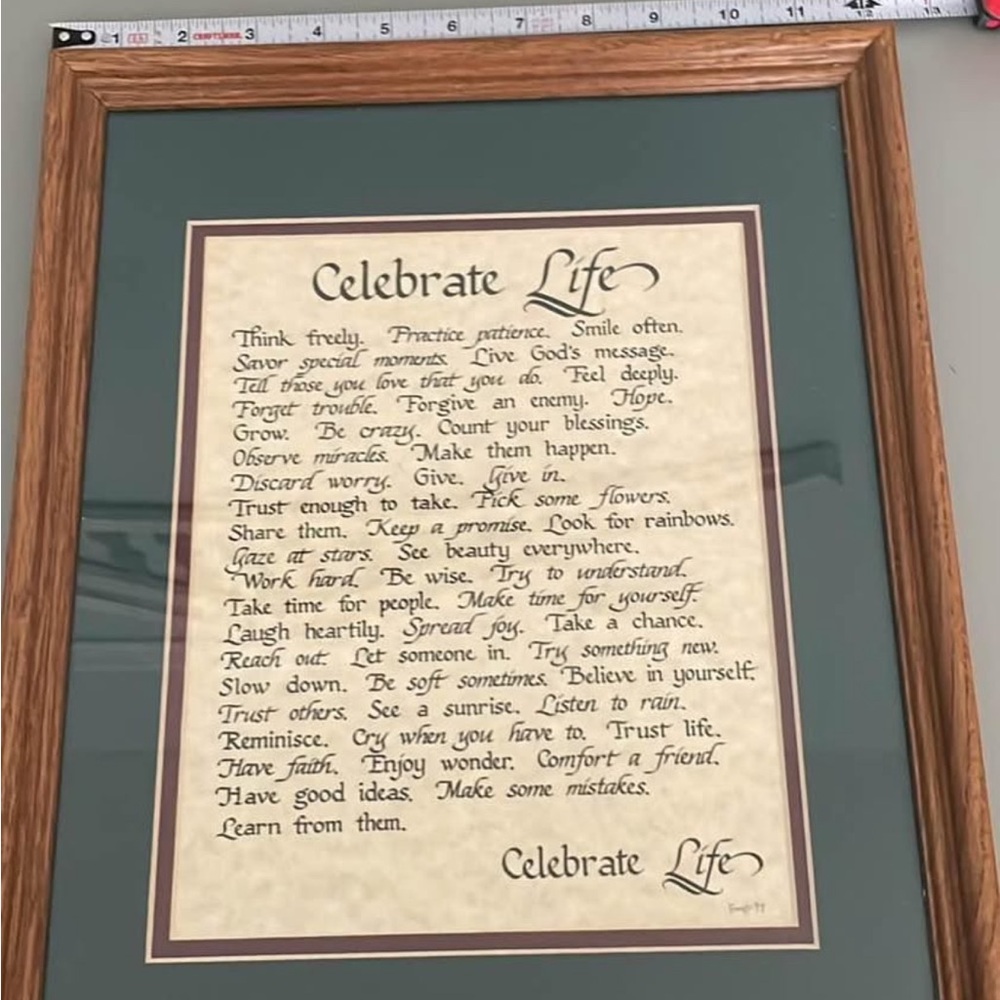 1 2 CRAFTSMAN 3 4 5 6 7 8 9 10 11 12 13
Celebrate Life
Think freely. Practice patience. Smile often.
Savor special moments. Live God's message.
Tell those you love that you do. Feel deeply.
Forget trouble. Forgive an enemy. Hope.
Grow. Be crazy. Count your blessings.
Observe miracles. Make them happen.
Discard worry. Give. Give in.
Trust enough to take. Pick some flowers.
Share them. Keep a promise. Look for rainbows.
Gaze at stars. See beauty everywhere.
Work hard. Be wise. Try to understand.
Take time for people. Make time for yourself.
Laugh heartily. Spread joy. Take a chance.
Reach out. Let someone in. Try something new.
Slow down. Be soft sometimes. Believe in yourself.
Trust others. See a sunrise. Listen to rain.
Reminisce. Cry when you have to. Trust life.
Have faith. Enjoy wonder. Comfort a friend.
Have good ideas. Make some mistakes.
Learn from them.
Celebrate Life